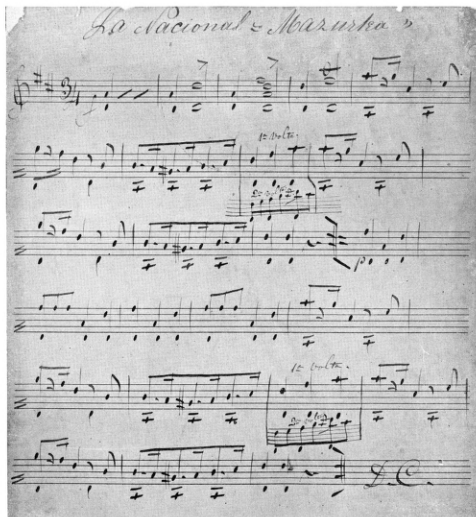 La Nacional = Mazurka "
3/4
f
1ª volta.
2ª volta
p
1ª volta.
2ª volta
D.C.